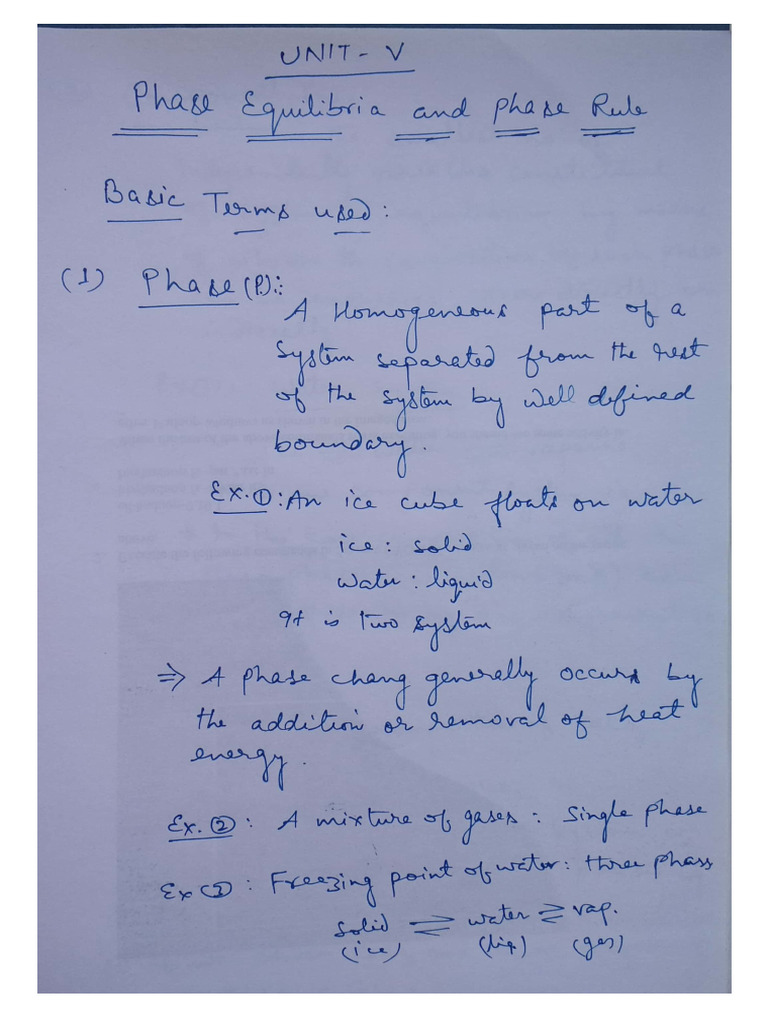 UNIT - V
Phase Equilibria and Phase Rule
Basic Terms used:
(1) Phase (P):
A Homogeneous part of a
system separated from the rest
of the system by well defined
boundary.
Ex. ①: An ice cube floats on water
ice : solid
water : liquid
It is two system
⇒ A phase chang generally occurs by
the addition or removal of heat
energy.
Ex. ②: A mixture of gases : Single phase
Ex ③: Freezing point of water : three phass
solid ⇌ water ⇌ vap.
(ice) (liq) (gas)